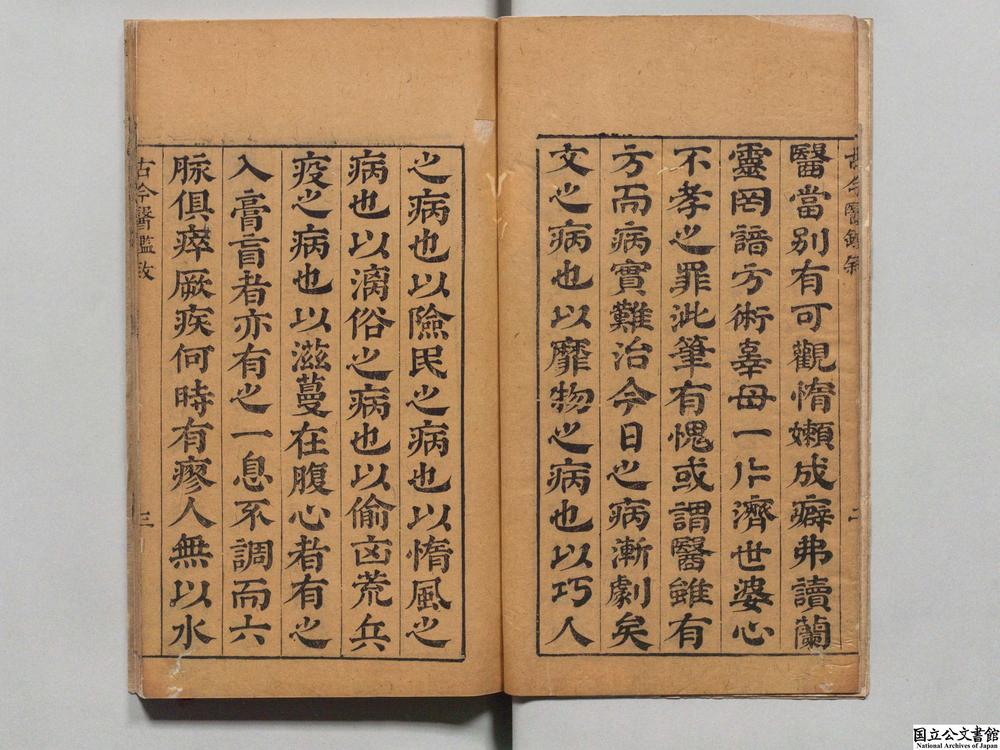 醫當別有可觀惰嬾成癖弗讀蘭
靈罔諳方術辜母一片濟世婆心
不孝之罪泚筆有愧或謂醫雖有
方而病實難治今日之病漸劇矣
文之病也以靡物之病也以巧人
之病也以險民之病也以惰風之
病也以漓俗之病也以偷凶荒兵
疫之病也以滋蔓在腹心者有之
入膏肓者亦有之一息不調而六
脉俱瘁厥疾何時有瘳人無以水
古今醫鑑敘
三
国立公文書館
National Archives of Japan